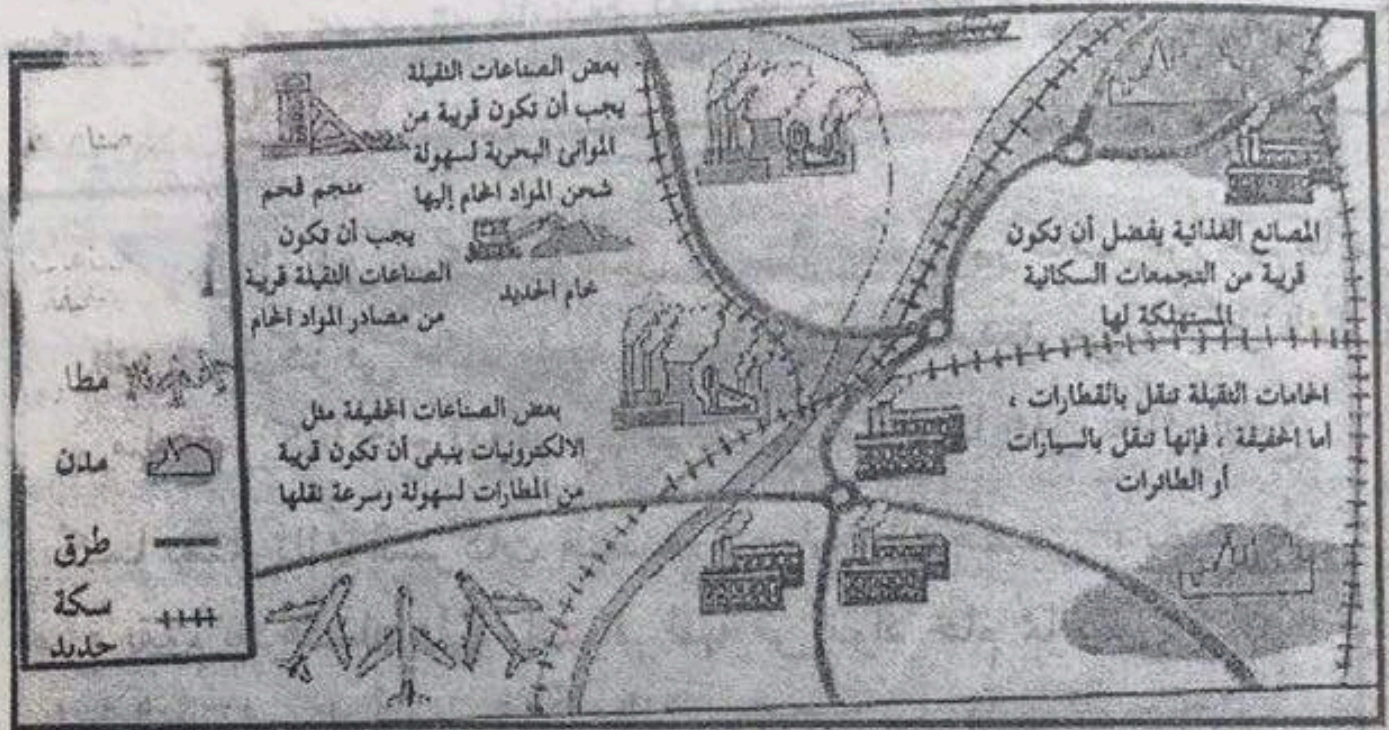 بعض الصناعات الثقيلة
يجب أن تكون قريبة من
الموانئ البحرية لسهولة
شحن المواد الخام إليها
منجم فحم
يجب أن تكون
الصناعات الثقيلة قريبة
من مصادر المواد الخام
خام الحديد
المصانع الغذائية يفضل أن تكون
قريبة من التجمعات السكانية
المستهلكة لها
الخامات الثقيلة تنقل بالقطارات ،
أما الخفيفة ، فإنها تنقل بالسيارات
أو الطائرات
بعض الصناعات الخفيفة مثل
الالكترونيات ينبغي أن تكون قريبة
من المطارات لسهولة وسرعة نقلها
مطار
مدن
طرق
سكة
حديد